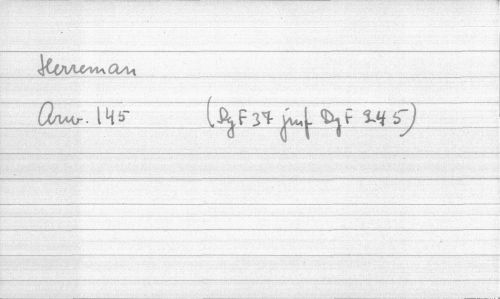 Herreman
Arw. 145 (DgF 37 jmf DgF 245)